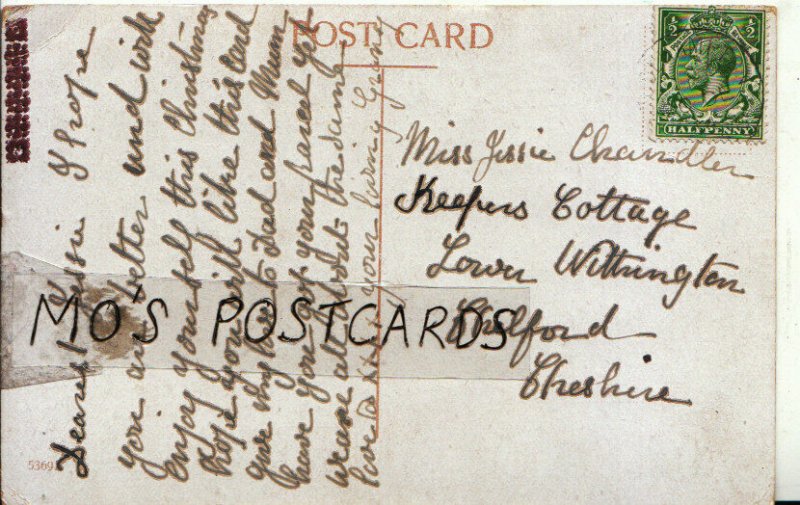 POST CARD
½ ½
HALFPENNY
Dearest Jessie I hope
you are better and will
enjoy yourself this Christmas
hope you will like this card
give my love to Dad and Mum
have you got your parcel yet
we are all about the same
love to all your loving Granny
Miss Jessie Chandler
Keepers Cottage
Lower Withington
Chelford
Cheshire
MO'S POSTCARDS
5369